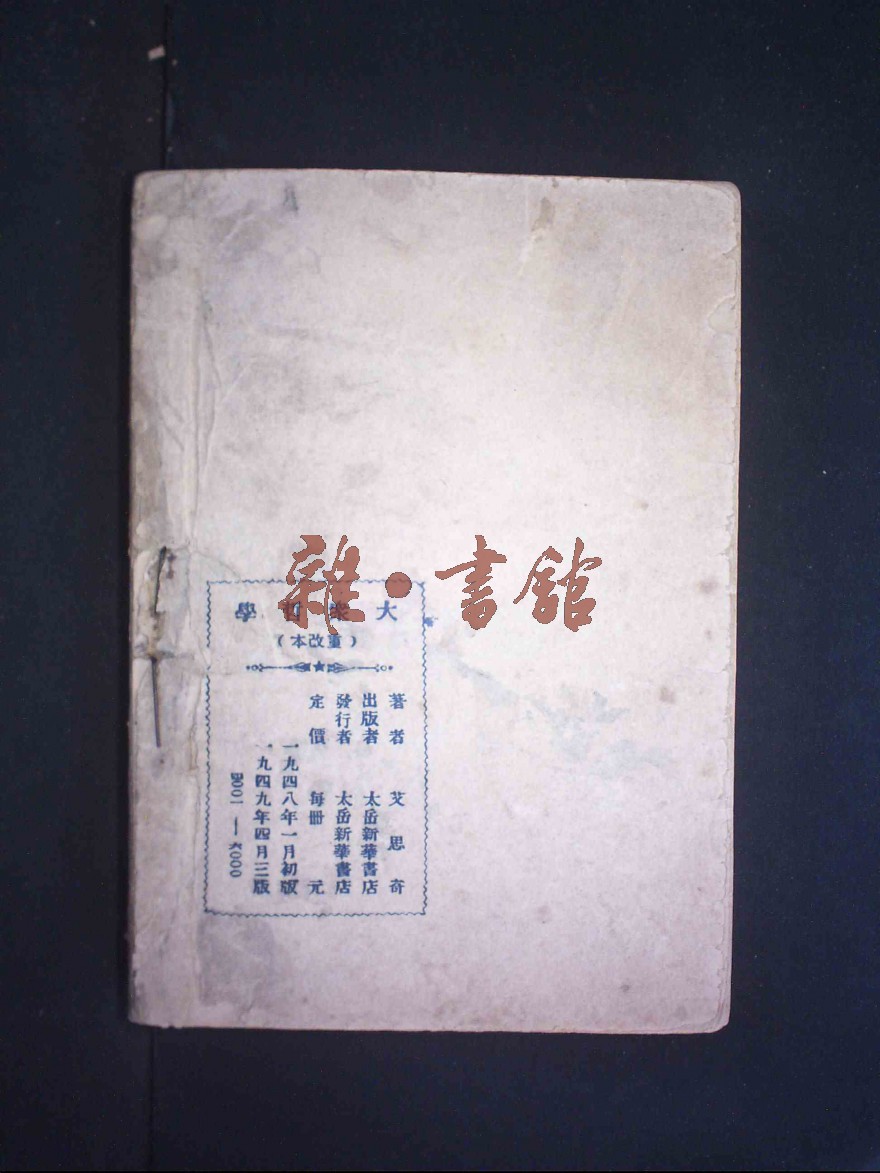 雜·書館
大衆哲學
（重改本）
著者 艾思奇
出版者 太岳新華書店
發行者 太岳新華書店
定價 每冊 元
一九四八年一月初版
一九四九年四月三版